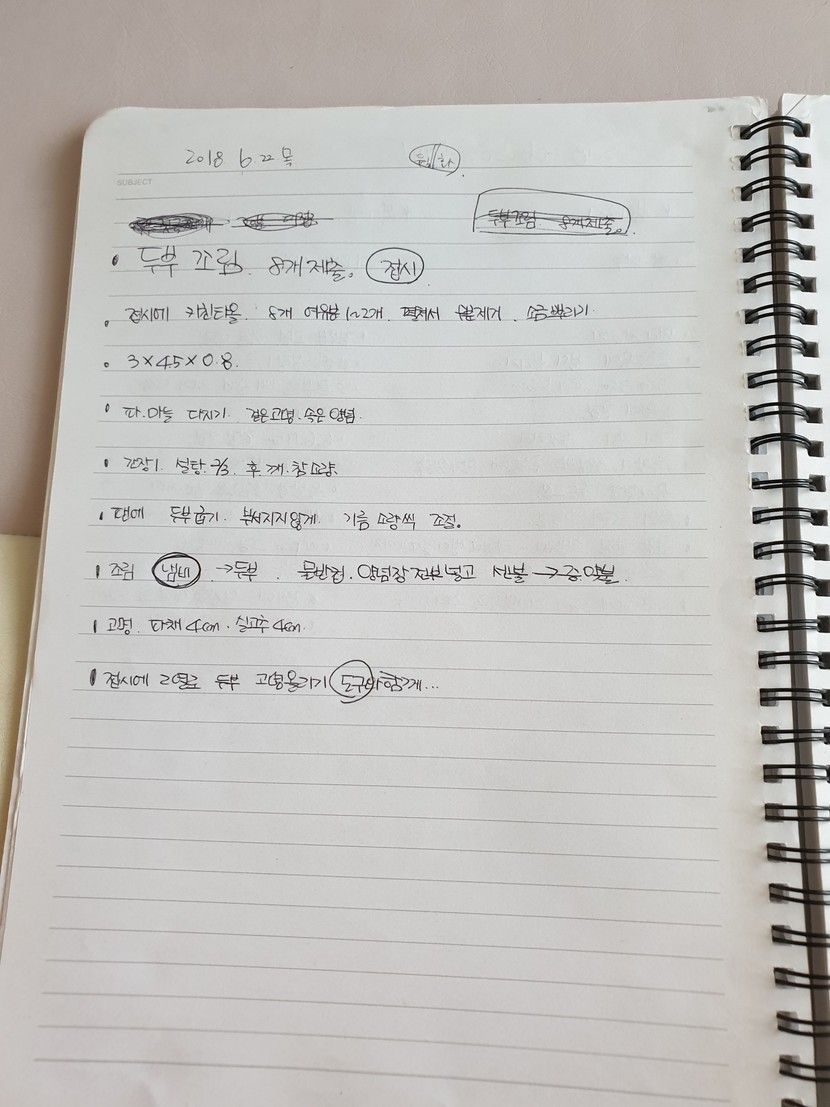 2018. 6. 22. 목
SUBJECT
두부조림 8개제출.
• 두부 조림. 8개 제출. 접시
• 접시에 키친타올. 8개 여유분 1~2개. 펼쳐서 수분제거. 소금뿌리기.
• 3×4.5×0.8.
• 파.마늘 다지기. 겉은고명.속은양념.
• 간장1. 설탕. 후.깨.참소량.
• 팬에 두부굽기. 부서지지않게. 기름 소량씩 조절.
• 조림 냄비. →두부. 물반컵. 양념장전부넣고 센불→중약불.
• 고명. 파채4cm. 실고추4cm.
• 접시에 2열로 두부 고명올리기 도구와함께...